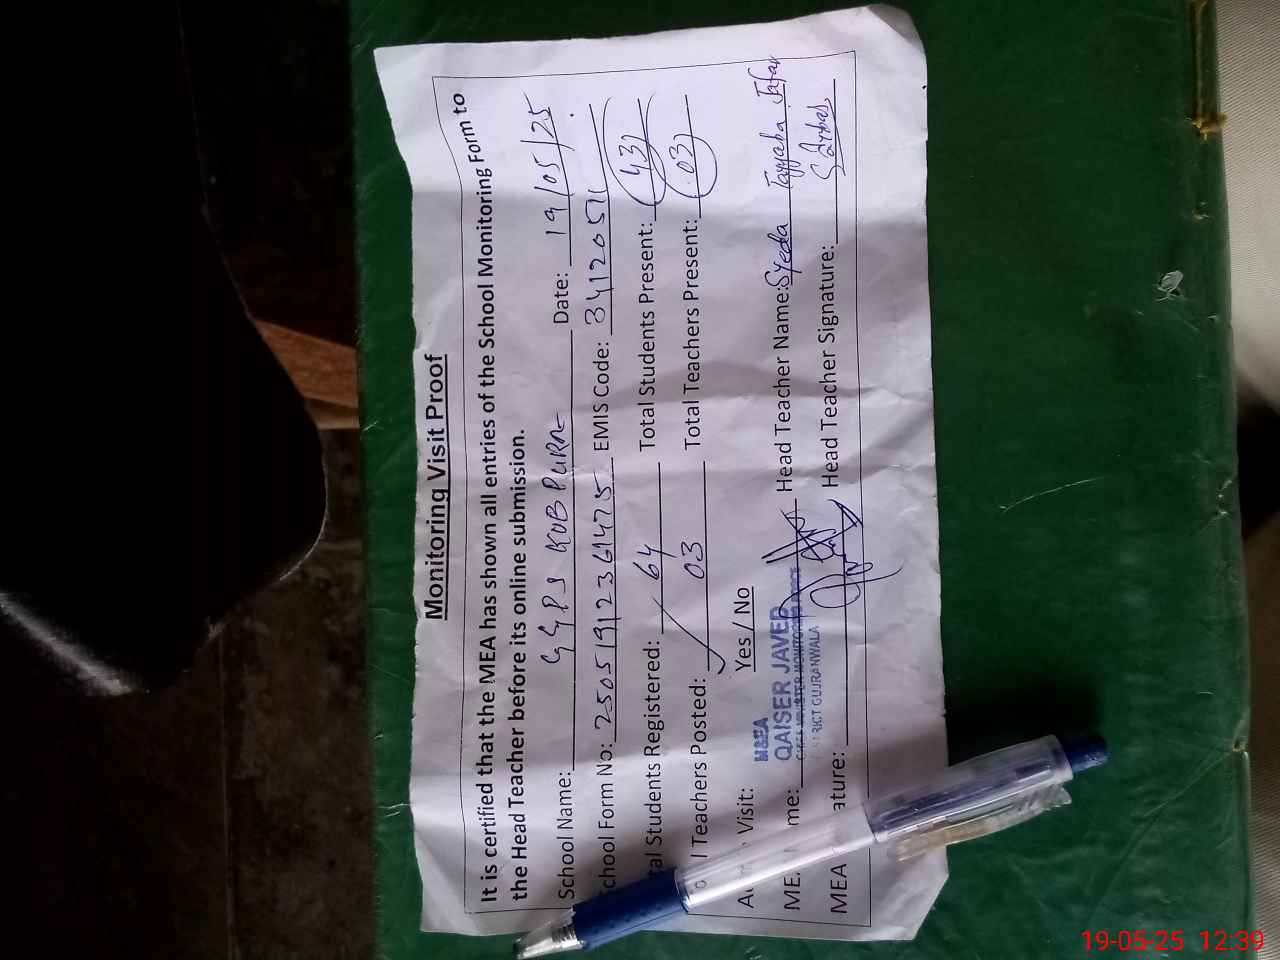 Monitoring Visit Proof
It is certified that the MEA has shown all entries of the School Monitoring Form to
the Head Teacher before its online submission.
School Name: GGPS KUB PURA Date: 19/05/25
chool Form No: 25051912361475 EMIS Code: 34120511
tal Students Registered: 64 Total Students Present: 43
l Teachers Posted: 03 Total Teachers Present: 03
Visit: Yes / No
M&EA
me: QAISER JAVED Head Teacher Name: Syeda Tayyaba Jafar
CHIEF MINISTER MONITORING FORCE
RICT GUJRANWALA
MEA ature: Head Teacher Signature:
19-05-25 12:39